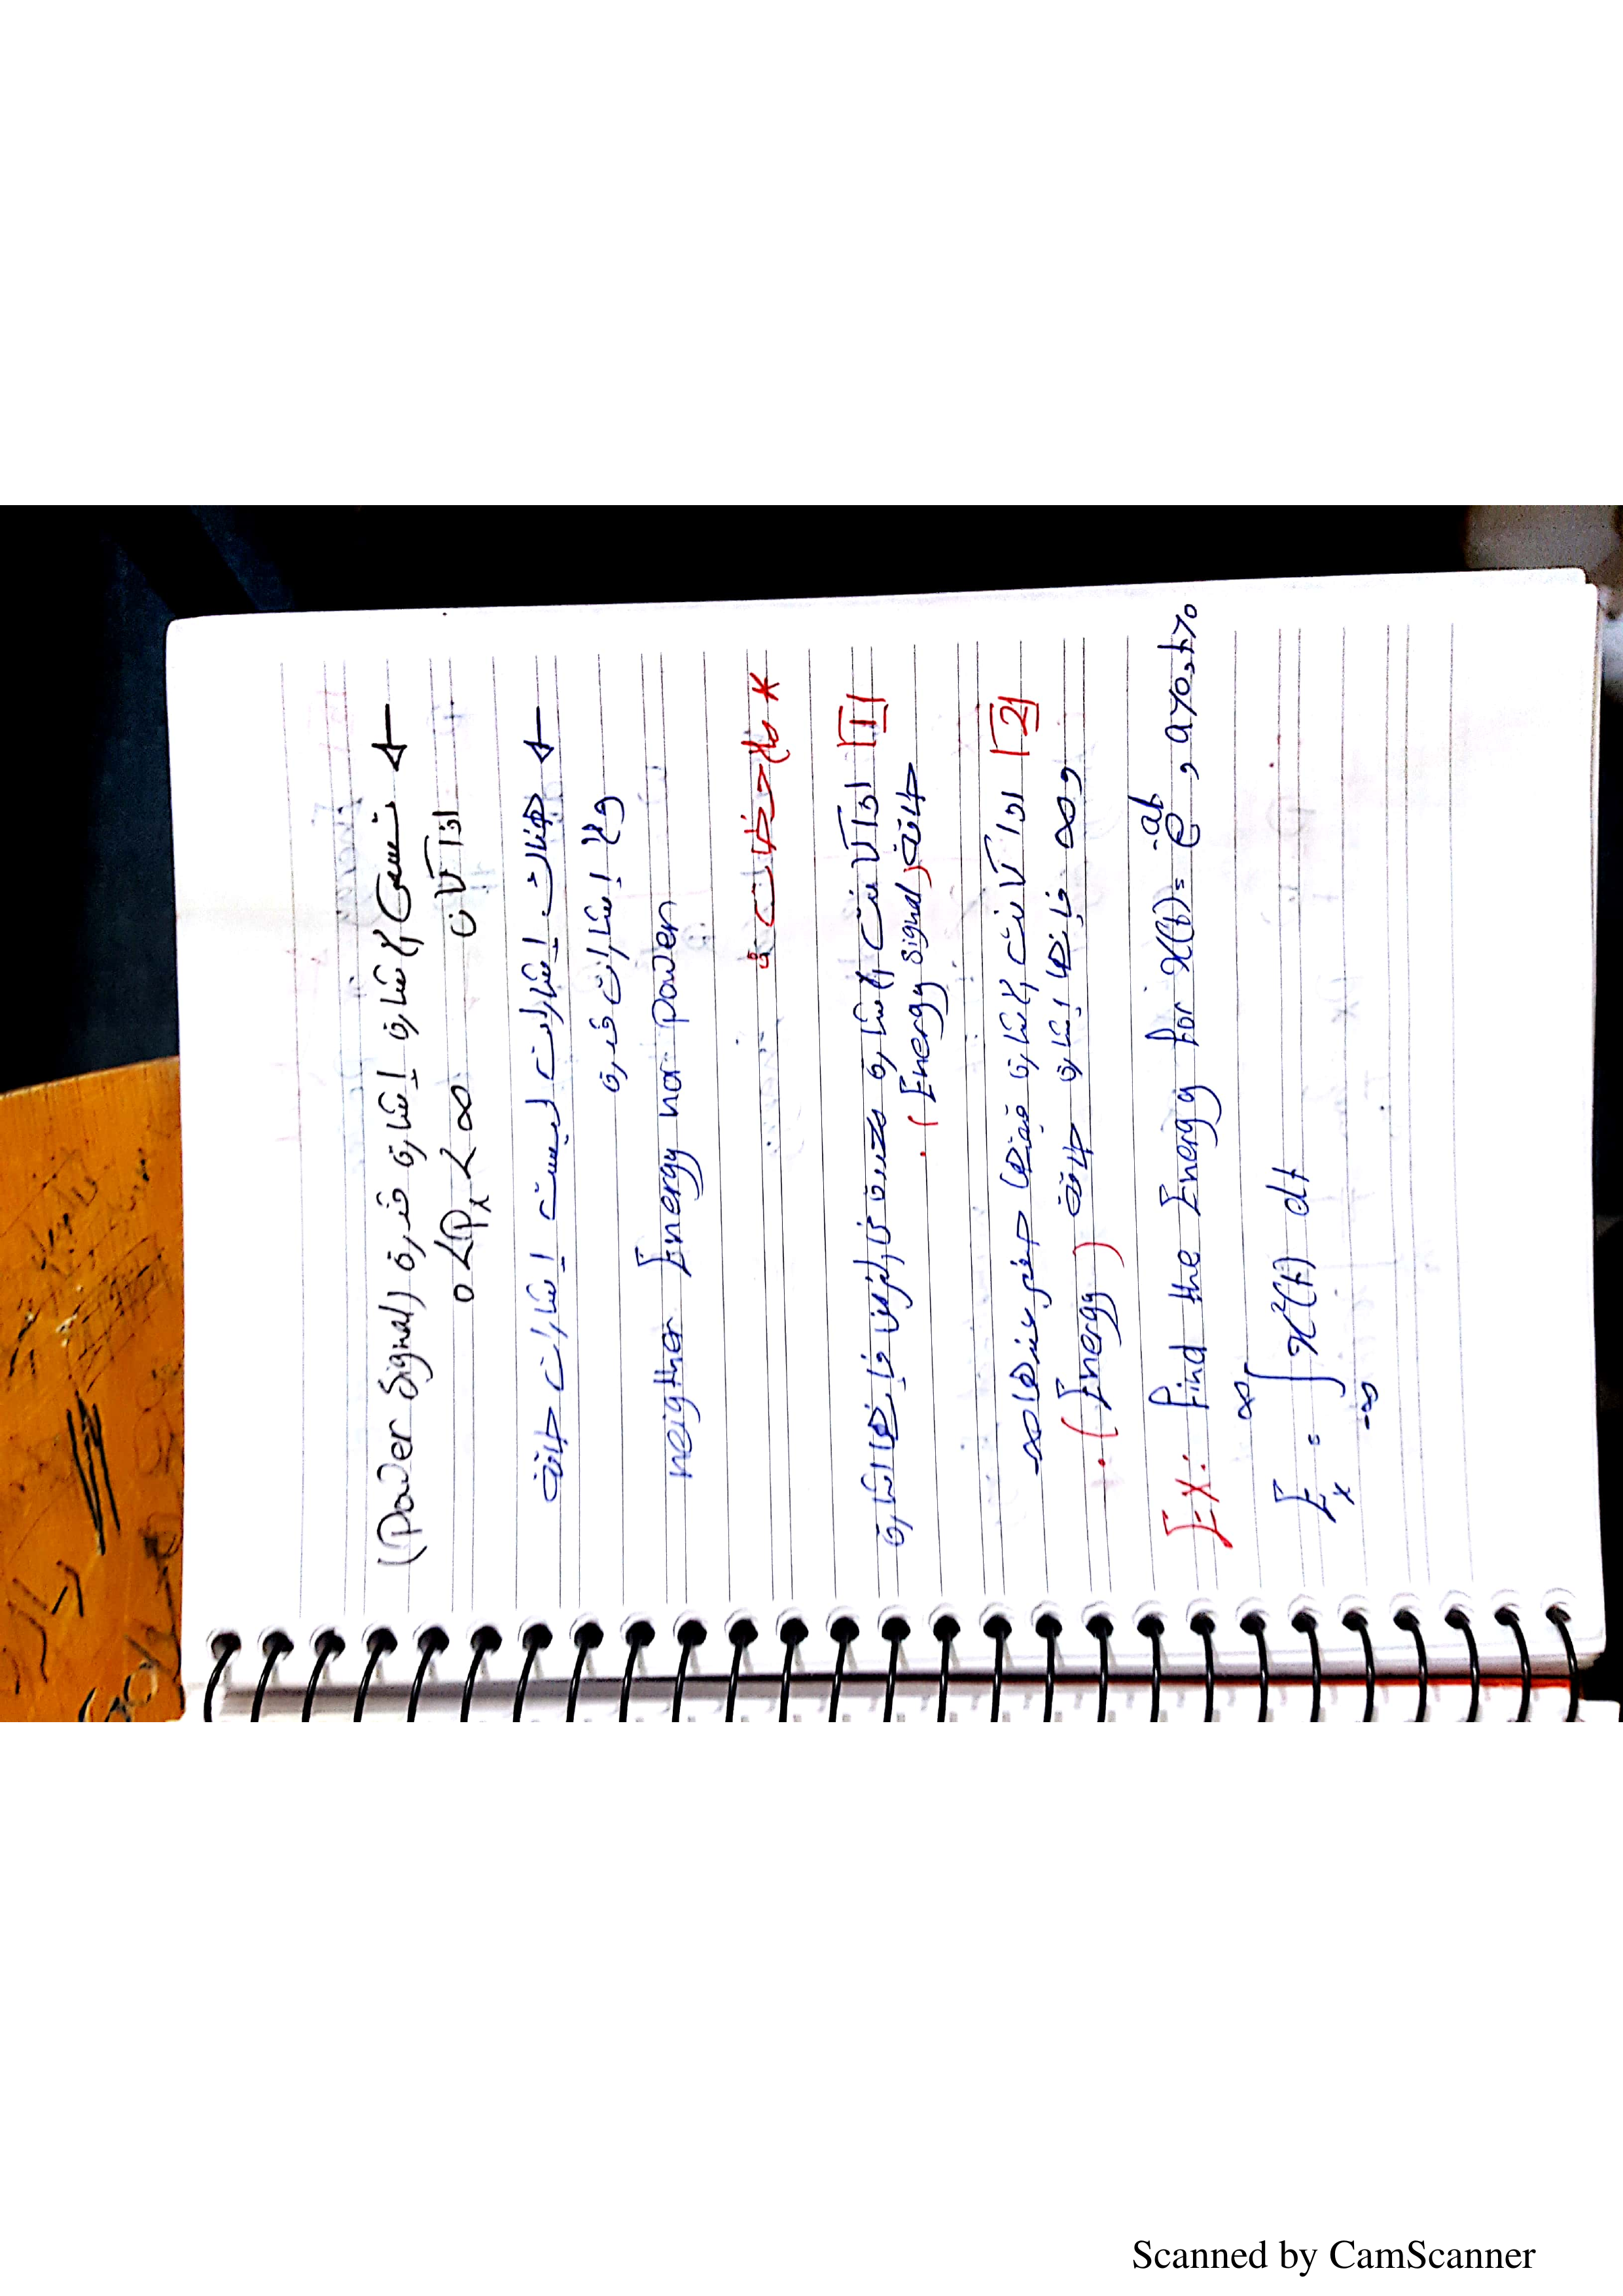 ← تسمى الإشارة إشارة قدرة (Power Signal)
اذا كان 0 < Px < ∞
← هناك إشارات ليست إشارات طاقة
ولا إشارات قدرة
neigther Energy nor Power
* ملاحظات :
1 اذا كانت الإشارة محددة بالزمن فإنها إشارة
طاقة (Energy Signal).
2 اذا كانت الإشارة قيمتها صفر عند ∞-
و ∞ فإنها إشارة طاقة
(Energy).
EX: Find the Energy for x(t) = e^-at , a>0, t>0
Ex = ∫_-∞^∞ x²(t) dt
Scanned by CamScanner